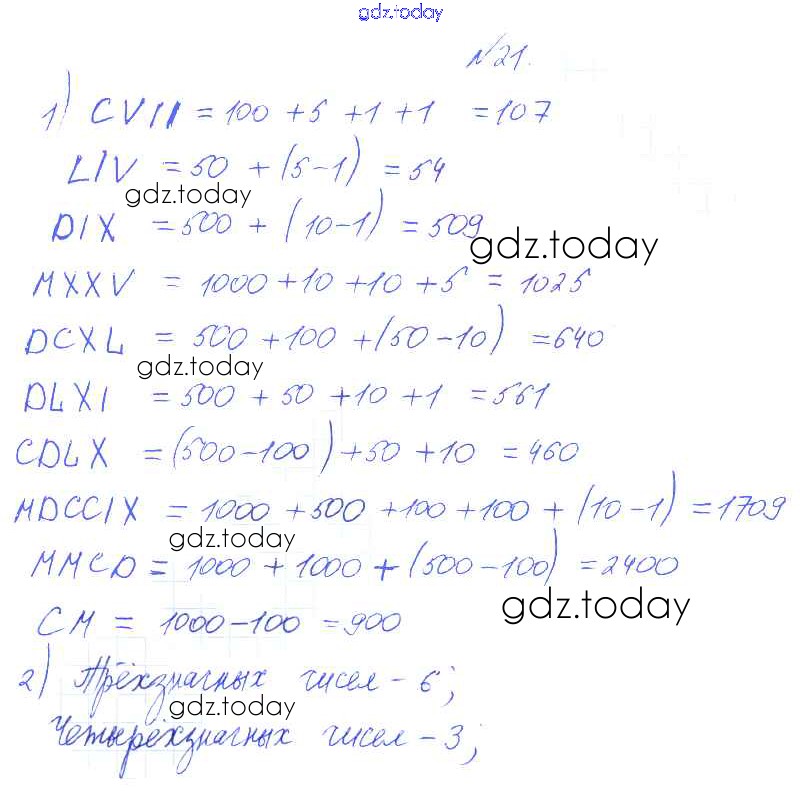 gdz.today
№21.
1) CVII = 100 + 5 + 1 + 1 = 107
LIV = 50 + (5-1) = 54
gdz.today
DIX = 500 + (10-1) = 509
gdz.today
MXXV = 1000 + 10 + 10 + 5 = 1025
DCXL = 500 + 100 + (50-10) = 640
gdz.today
DLXI = 500 + 50 + 10 + 1 = 561
CDLX = (500-100) + 50 + 10 = 460
MDCCIX = 1000 + 500 + 100 + 100 + (10-1) = 1709
gdz.today
MMCD = 1000 + 1000 + (500-100) = 2400
gdz.today
CM = 1000-100 = 900
2) Трёхзначных чисел - 6;
gdz.today
Четырёхзначных чисел - 3;